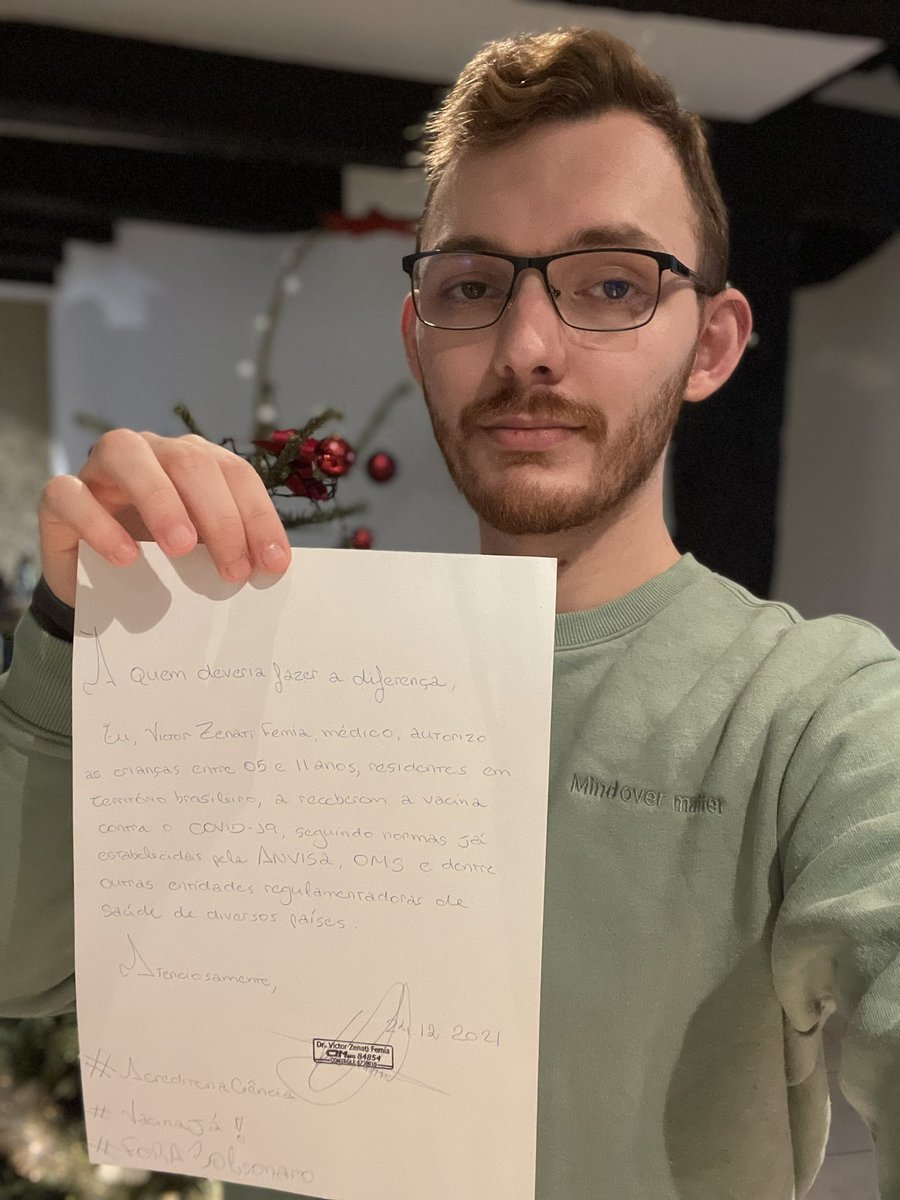 A quem deveria fazer a diferença,
Eu, Victor Zenati Femia, médico, autorizo
as crianças entre 05 e 11 anos, residentes em
território brasileiro, a receberem a vacina
contra o COVID-19, seguindo normas já
estabelecidas pela ANVISA, OMS e dentre
outras entidades regulamentadoras de
saúde de diversos países.
Atenciosamente,
24.12.2021
Dr. Victor Zenati Femia
84854
#AcreditenaCiência
#Vacinajá!!
#ForaBolsonaro
Mind over matter